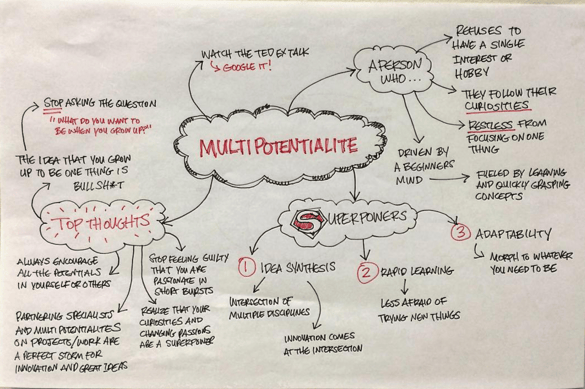 WATCH THE TED EX TALK
GOOGLE IT!
A PERSON
WHO...
REFUSES TO
HAVE A SINGLE
INTEREST OR
HOBBY
THEY FOLLOW THEIR
CURIOSITIES
RESTLESS FROM
FOCUSING ON ONE
THING
DRIVEN BY
A BEGINNERS
MIND
FUELED BY LEARNING
AND QUICKLY GRASPING
CONCEPTS
MULTIPOTENTIALITE
STOP ASKING THE QUESTION
"WHAT DO YOU WANT TO
BE WHEN YOU GROW UP?"
THE IDEA THAT YOU GROW
UP TO BE ONE THING IS
BULLSH*T
TOP THOUGHTS
ALWAYS ENCOURAGE
ALL THE POTENTIALS
IN YOURSELF OR OTHERS
PARTNERING SPECIALISTS
AND MULTIPOTENTIALITES
ON PROJECTS/WORK ARE
A PERFECT STORM FOR
INNOVATION AND GREAT IDEAS
STOP FEELING GUILTY
THAT YOU ARE
PASSIONATE IN
SHORT BURSTS
REALIZE THAT YOUR
CURIOSITIES AND
CHANGING PASSIONS
ARE A SUPERPOWER
SUPERPOWERS
1 IDEA SYNTHESIS
INTERSECTION OF
MULTIPLE DISCIPLINES
INNOVATION COMES
AT THE INTERSECTION
2 RAPID LEARNING
LESS AFRAID OF
TRYING NEW THINGS
3 ADAPTABILITY
MORPH TO WHATEVER
YOU NEED TO BE